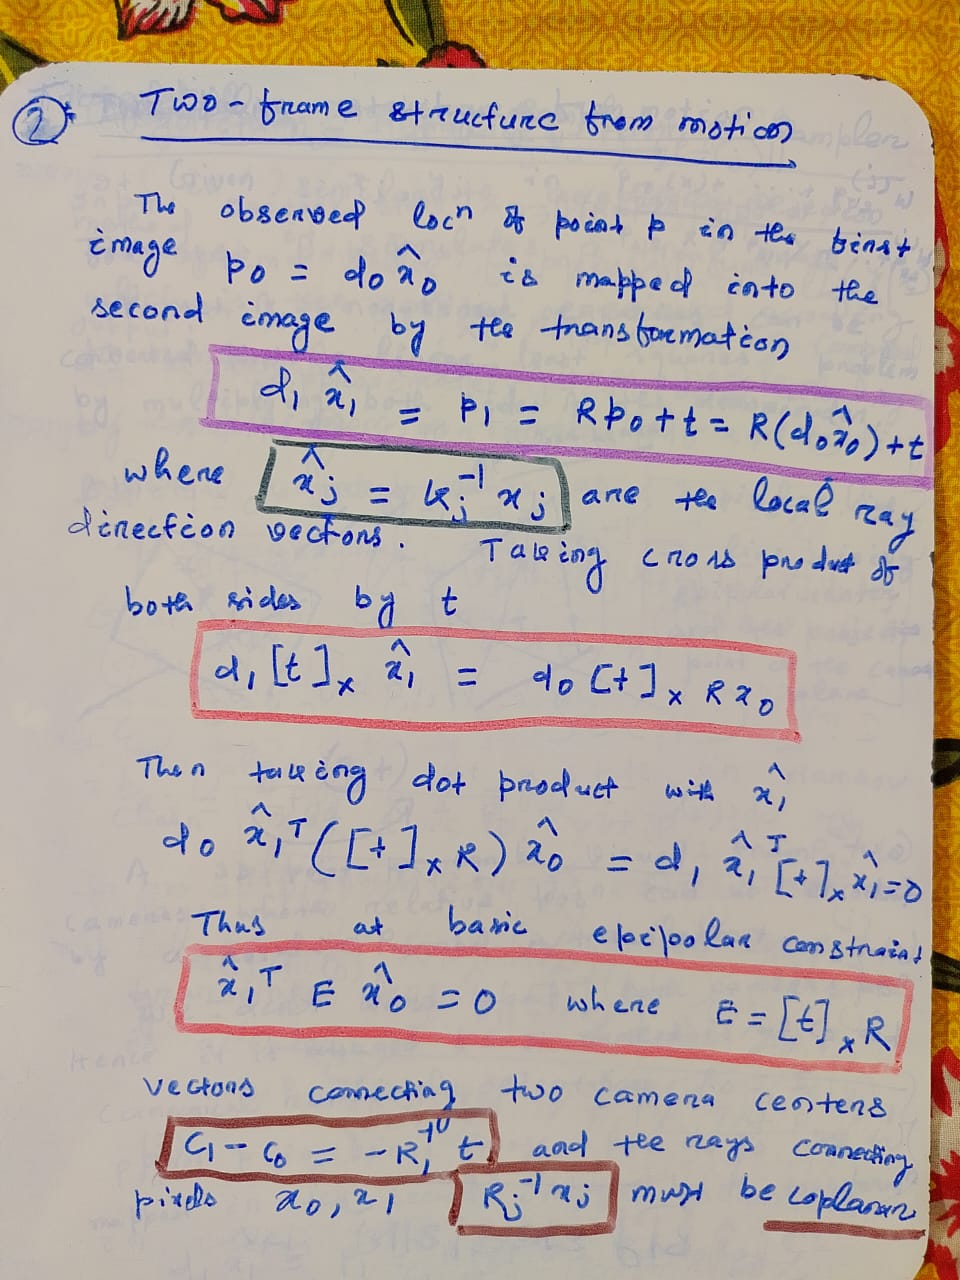 2 Two-frame structure from motion
The observed locⁿ of point p in the first
image p₀ = d₀ x̂₀ is mapped into the
second image by the transformation
d₁ x̂₁ = p₁ = Rp₀ + t = R(d₀x̂₀) + t
where x̂ⱼ = kⱼ⁻¹ xⱼ are the local ray
direction vectors. Taking cross product of
both sides by t
d₁ [t]ₓ x̂₁ = d₀ [t]ₓ R x₀
Then taking dot product with x̂₁
d₀ x̂₁ᵀ ([t]ₓ R) x̂₀ = d₁ x̂₁ᵀ [t]ₓ x̂₁ = 0
Thus at basic epipolar constraint
x̂₁ᵀ E x̂₀ = 0 where E = [t]ₓ R
vectors connecting two camera centers
c₁ - c₀ = -R₁ t and the rays connecting
pixels x₀, x₁ Rⱼ⁻¹ xⱼ must be coplanar